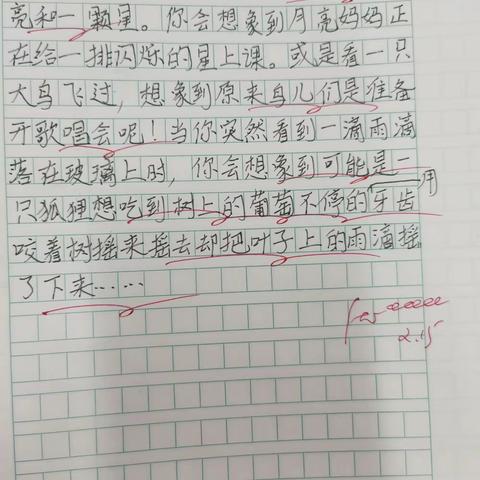 亮和一颗星。你会想象到月亮妈妈正
在给一排闪烁的星上课。或是看一只
大鸟飞过，想象到原来鸟儿们是准备
开歌唱会呢！当你突然看到一滴雨滴
落在玻璃上时，你会想象到可能是一
只狐狸想吃到树上的葡萄不停的用牙齿
咬着树摇来摇去却把叶子上的雨滴摇
了下来……
2.15